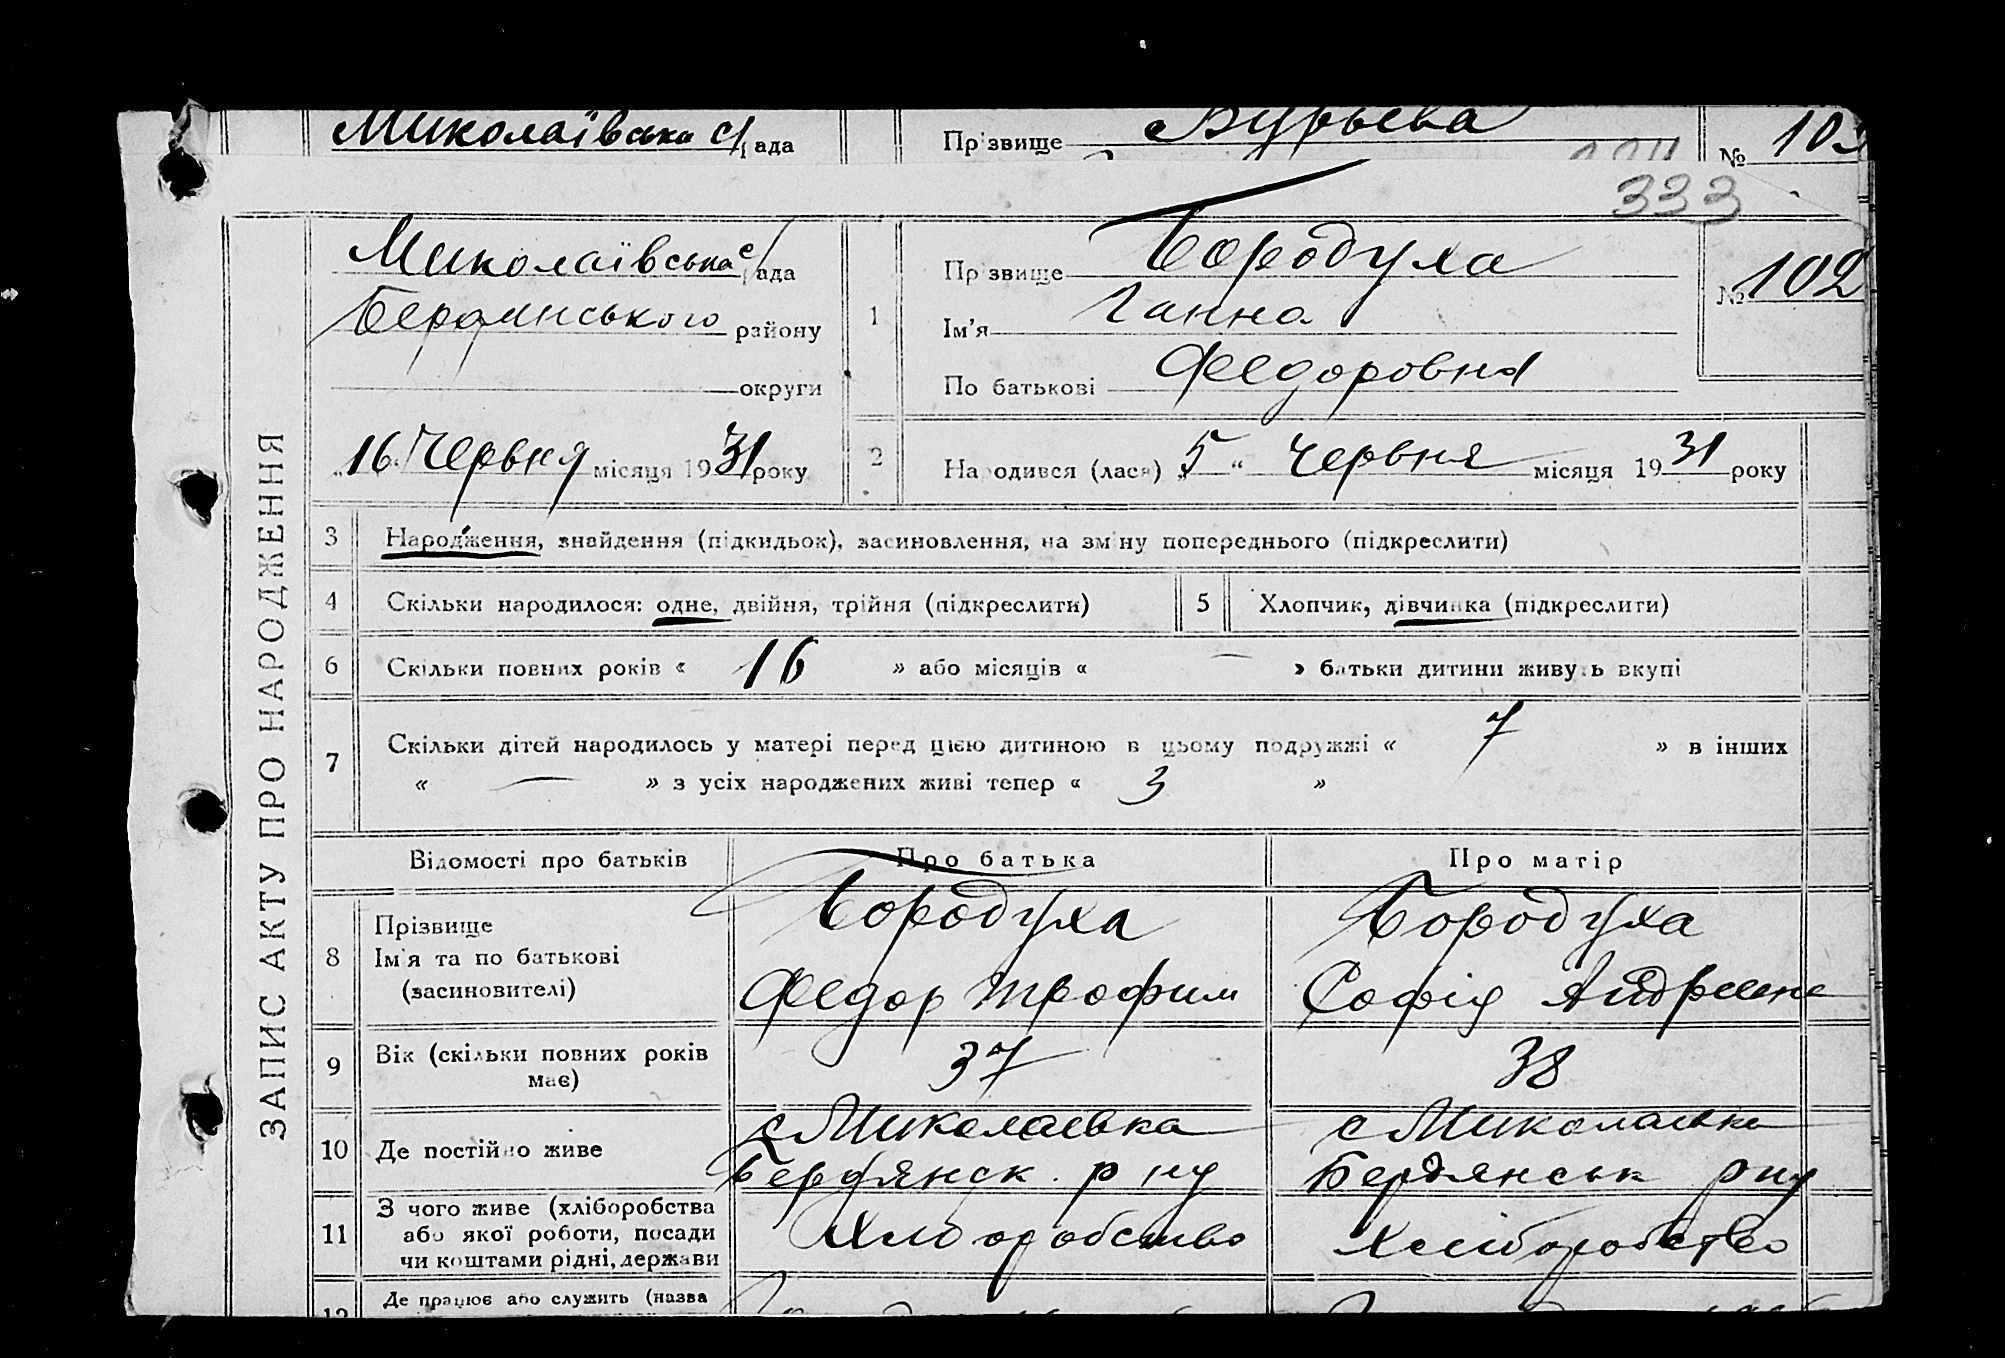 Миколаївська с/рада Прізвище Бурьева № 103
333
ЗАПИС АКТУ ПРО НАРОДЖЕННЯ
Миколаївська с/рада
Бердянського району
округи
16 Червня місяця 1931 року
1 Прізвище Бородуха № 102
Ім'я Ганна
По батькові Федоровна
2 Народився (лася) „5“ Червня місяця 1931 року
3 Народження, знайдення (підкидьок), засиновлення, на зміну попереднього (підкреслити)
4 Скільки народилося: одне, двійня, трійня (підкреслити) 5 Хлопчик, дівчинка (підкреслити)
6 Скільки повних років « 16 » або місяців « — » батьки дитини живуть вкупі
7 Скільки дітей народилось у матері перед цією дитиною в цьому подружжі « 7 » в інших
« — » з усіх народжених живі тепер « 3 »
Відомості про батьків Про батька Про матір
8 Прізвище Бородуха Бородуха
Ім'я та по батькові
(засиновителі) Федор Трофим Софія Андреевне
9 Вік (скільки повних років має) 37 38
10 Де постійно живе с Миколаевка с Миколаевка
Бердянск. р ну Бердянськ рну
11 З чого живе (хліборобства
або якої роботи, посади
чи коштами рідні, держави Хліборобство Хліборобство
12 Де працює або служить (назва